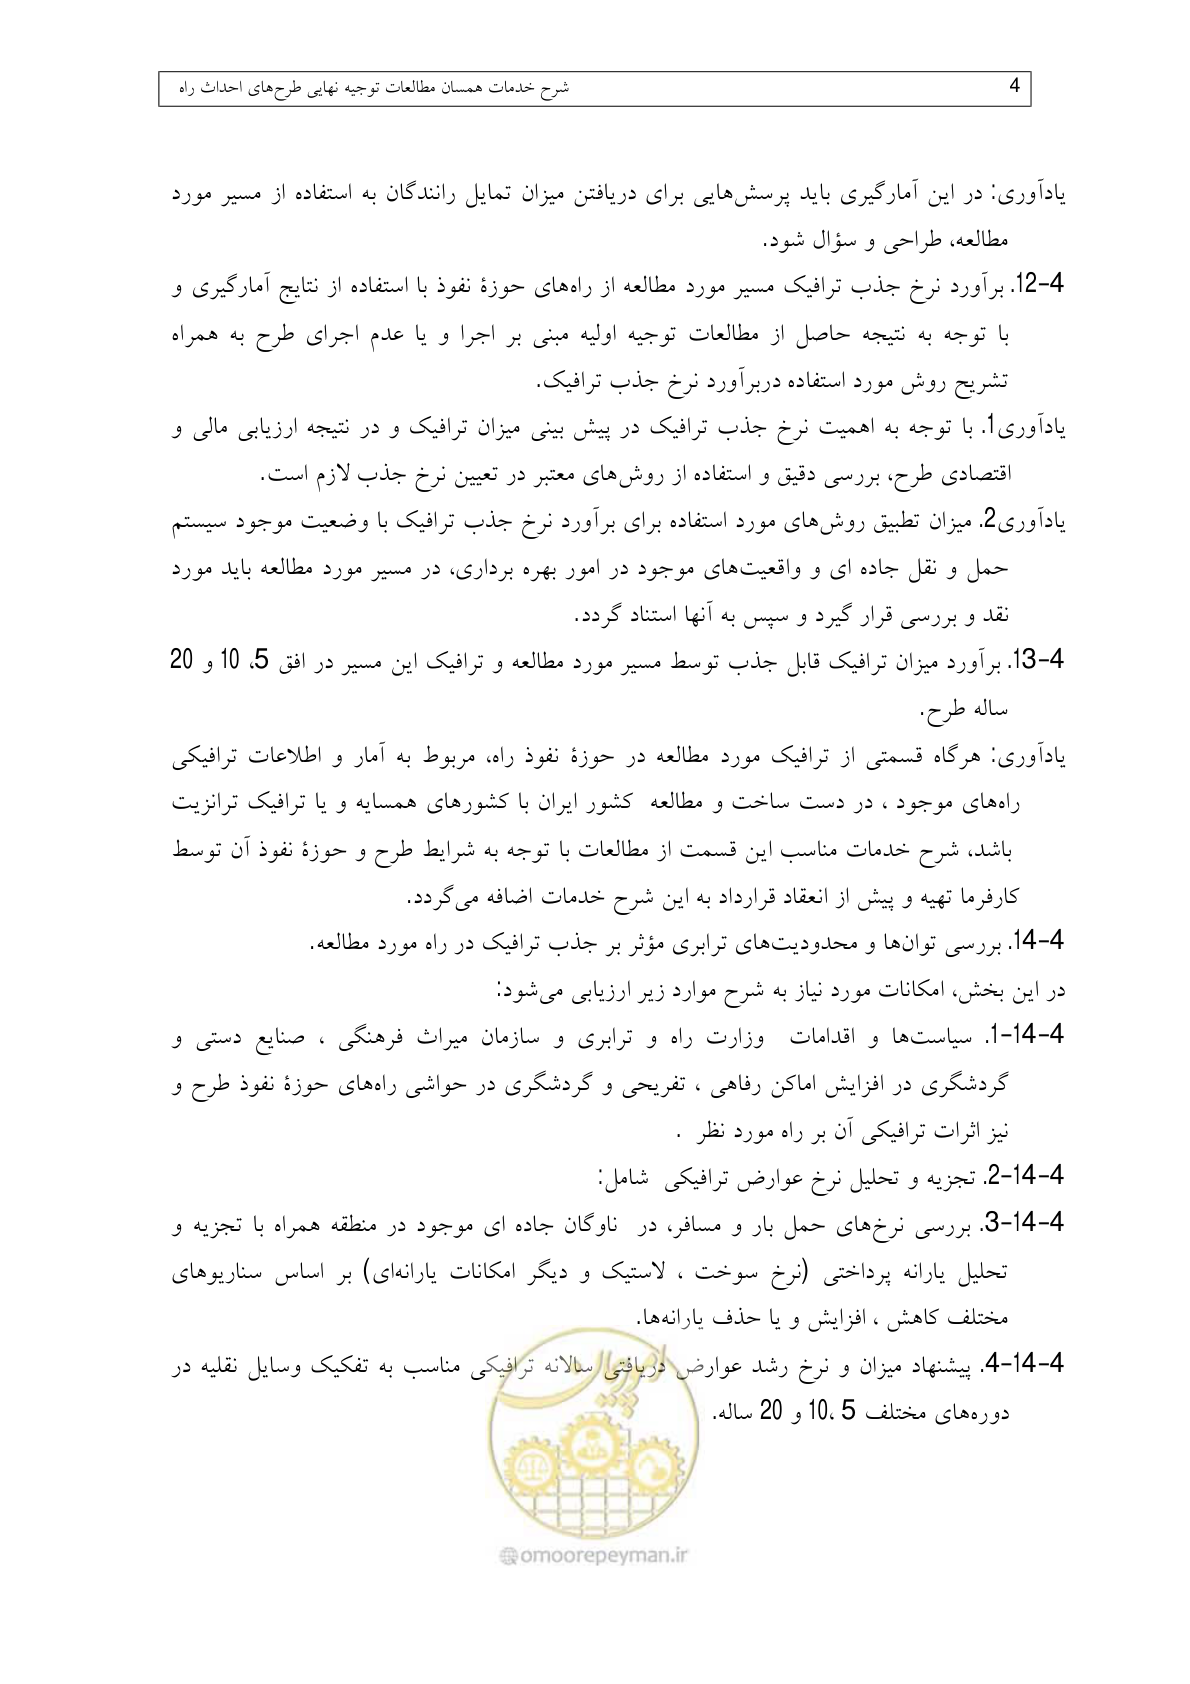 4 شرح خدمات همسان مطالعات توجیه نهایی طرح‌های احداث راه
یادآوری: در این آمارگیری باید پرسش‌هایی برای دریافتن میزان تمایل رانندگان به استفاده از مسیر مورد
مطالعه، طراحی و سؤال شود.
12-4. برآورد نرخ جذب ترافیک مسیر مورد مطالعه از راه‌های حوزۀ نفوذ با استفاده از نتایج آمارگیری و
با توجه به نتیجه حاصل از مطالعات توجیه اولیه مبنی بر اجرا و یا عدم اجرای طرح به همراه
تشریح روش مورد استفاده دربرآورد نرخ جذب ترافیک.
یادآوری1. با توجه به اهمیت نرخ جذب ترافیک در پیش بینی میزان ترافیک و در نتیجه ارزیابی مالی و
اقتصادی طرح، بررسی دقیق و استفاده از روش‌های معتبر در تعیین نرخ جذب لازم است.
یادآوری2. میزان تطبیق روش‌های مورد استفاده برای برآورد نرخ جذب ترافیک با وضعیت موجود سیستم
حمل و نقل جاده ای و واقعیت‌های موجود در امور بهره برداری، در مسیر مورد مطالعه باید مورد
نقد و بررسی قرار گیرد و سپس به آنها استناد گردد.
13-4. برآورد میزان ترافیک قابل جذب توسط مسیر مورد مطالعه و ترافیک این مسیر در افق 5، 10 و 20
ساله طرح.
یادآوری: هرگاه قسمتی از ترافیک مورد مطالعه در حوزۀ نفوذ راه، مربوط به آمار و اطلاعات ترافیکی
راه‌های موجود ، در دست ساخت و مطالعه کشور ایران با کشورهای همسایه و یا ترافیک ترانزیت
باشد، شرح خدمات مناسب این قسمت از مطالعات با توجه به شرایط طرح و حوزۀ نفوذ آن توسط
کارفرما تهیه و پیش از انعقاد قرارداد به این شرح خدمات اضافه می‌گردد.
14-4. بررسی توان‌ها و محدودیت‌های ترابری مؤثر بر جذب ترافیک در راه مورد مطالعه.
در این بخش، امکانات مورد نیاز به شرح موارد زیر ارزیابی می‌شود:
1-14-4. سیاست‌ها و اقدامات وزارت راه و ترابری و سازمان میراث فرهنگی ، صنایع دستی و
گردشگری در افزایش اماکن رفاهی ، تفریحی و گردشگری در حواشی راه‌های حوزۀ نفوذ طرح و
نیز اثرات ترافیکی آن بر راه مورد نظر .
2-14-4. تجزیه و تحلیل نرخ عوارض ترافیکی شامل:
3-14-4. بررسی نرخ‌های حمل بار و مسافر، در ناوگان جاده ای موجود در منطقه همراه با تجزیه و
تحلیل یارانه پرداختی (نرخ سوخت ، لاستیک و دیگر امکانات یارانه‌ای) بر اساس سناریوهای
مختلف کاهش ، افزایش و یا حذف یارانه‌ها.
4-14-4. پیشنهاد میزان و نرخ رشد عوارض دریافتی سالانه ترافیکی مناسب به تفکیک وسایل نقلیه در
دوره‌های مختلف 5 ،10 و 20 ساله.
امور پیمان
@omoorepeyman.ir